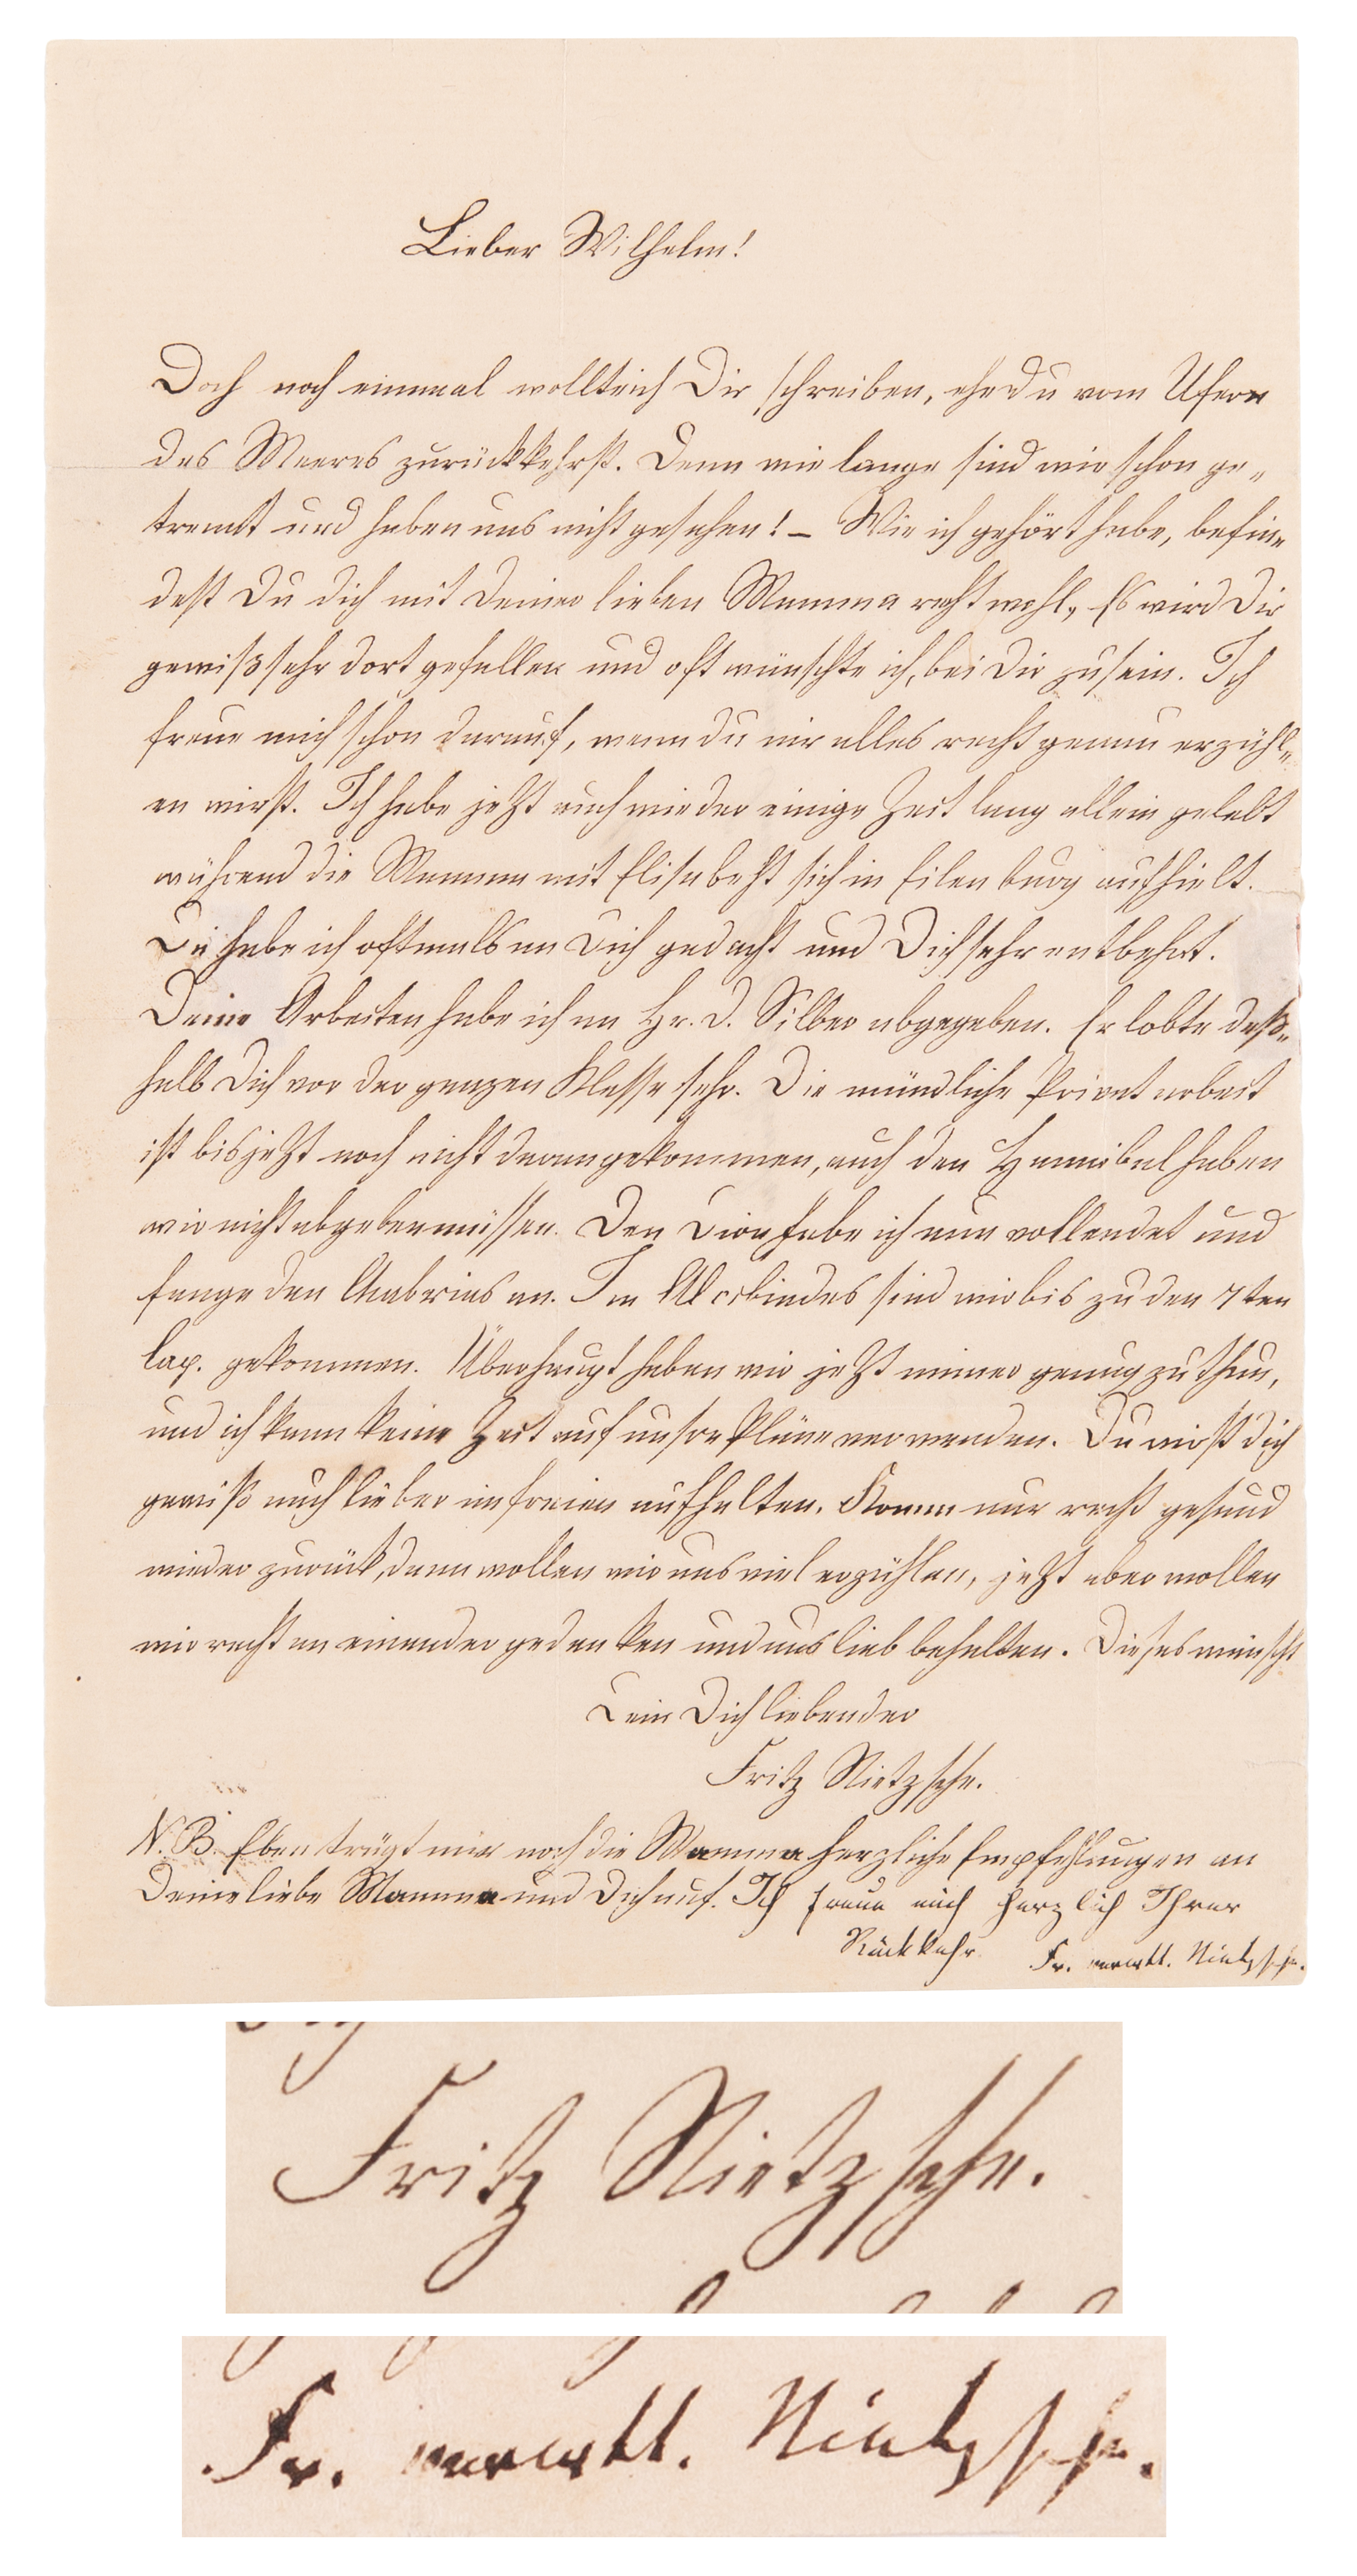 Lieber Wilhelm!
Doch noch einmal wollte ich Dir schreiben, ehe Du vom Ufern
des Meeres zurückkehrst. Denn wie lange sind wir schon ge-
trennt und haben uns nicht gesehen! – Wie ich gehört habe, befin-
dest Du dich mit Deiner lieben Mamma recht wohl, Es wird Dir
gewiß sehr dort gefallen und oft wünschte ich, bei Dir zu sein. Ich
freue mich schon darauf, wenn du mir alles recht genau erzähl-
en wirst. Ich habe jetzt auch wieder einige Zeit lang allein gelebt
während die Mamma mit Elisabeht sich in Eilenburg aufhielt.
Da habe ich oftmals an Dich gedacht und Dich sehr entbehrt.
Deine Arbeiten habe ich an Hr. D. Silber abgegeben. Er lobte deß-
halb Dich vor der ganzen Klasse sehr. Die mündliche Privatarbeit
ist bis jetzt noch nicht daran gekommen, auch den Hannibal haben
wir nicht abgeben müssen. Den Dion habe ich nun vollendet und
fange den Chabrias an. Im Alcibiades sind wir bis zu den 7ten
Cap. gekommen. Überhaupt haben wir jetzt immer genug zu thun,
und ich kann keine Zeit auf unsre Pläne verwenden. Du wirst dich
gewiß auch lieber im freien aufhalten. Komm nur recht gesund
wieder zurück, dann wollen wir uns viel erzählen, jetzt aber wollen
wir recht an einander gedenken und uns lieb behalten. Dieses wünscht
Dein Dich liebender
Fritz Nietzsche.
N. B. Eben trägt mir noch die Mamma herzliche Empfehlungen an
Deine liebe Mamma und Dich auf. Ich freue mich herzlich Ihrer
Rückkehr. Fr. verwtt. Nietzsche.
Fritz Nietzsche.
Fr. verwtt. Nietzsche.